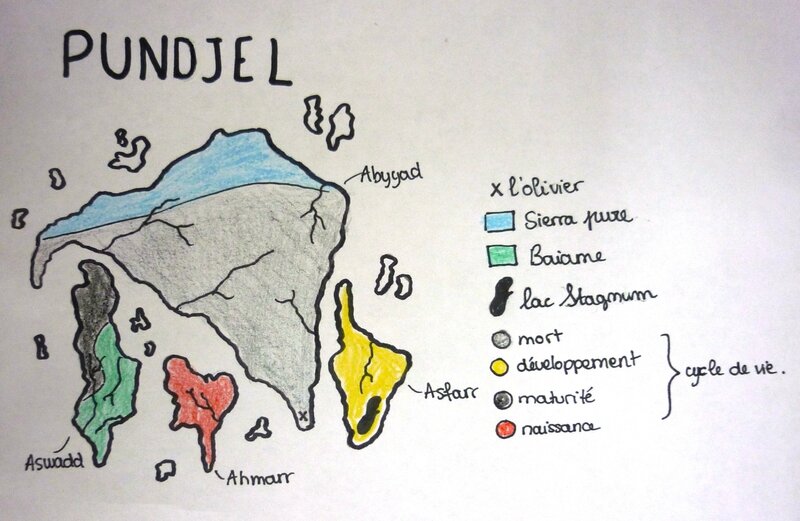 PUNDJEL
Abygad
x l'olivier
Sierra pure
Baiame
lac Stagnum
mort
développement
maturité
naissance
cycle de vie.
Asfarr
Aswadd
Ahmarr
x